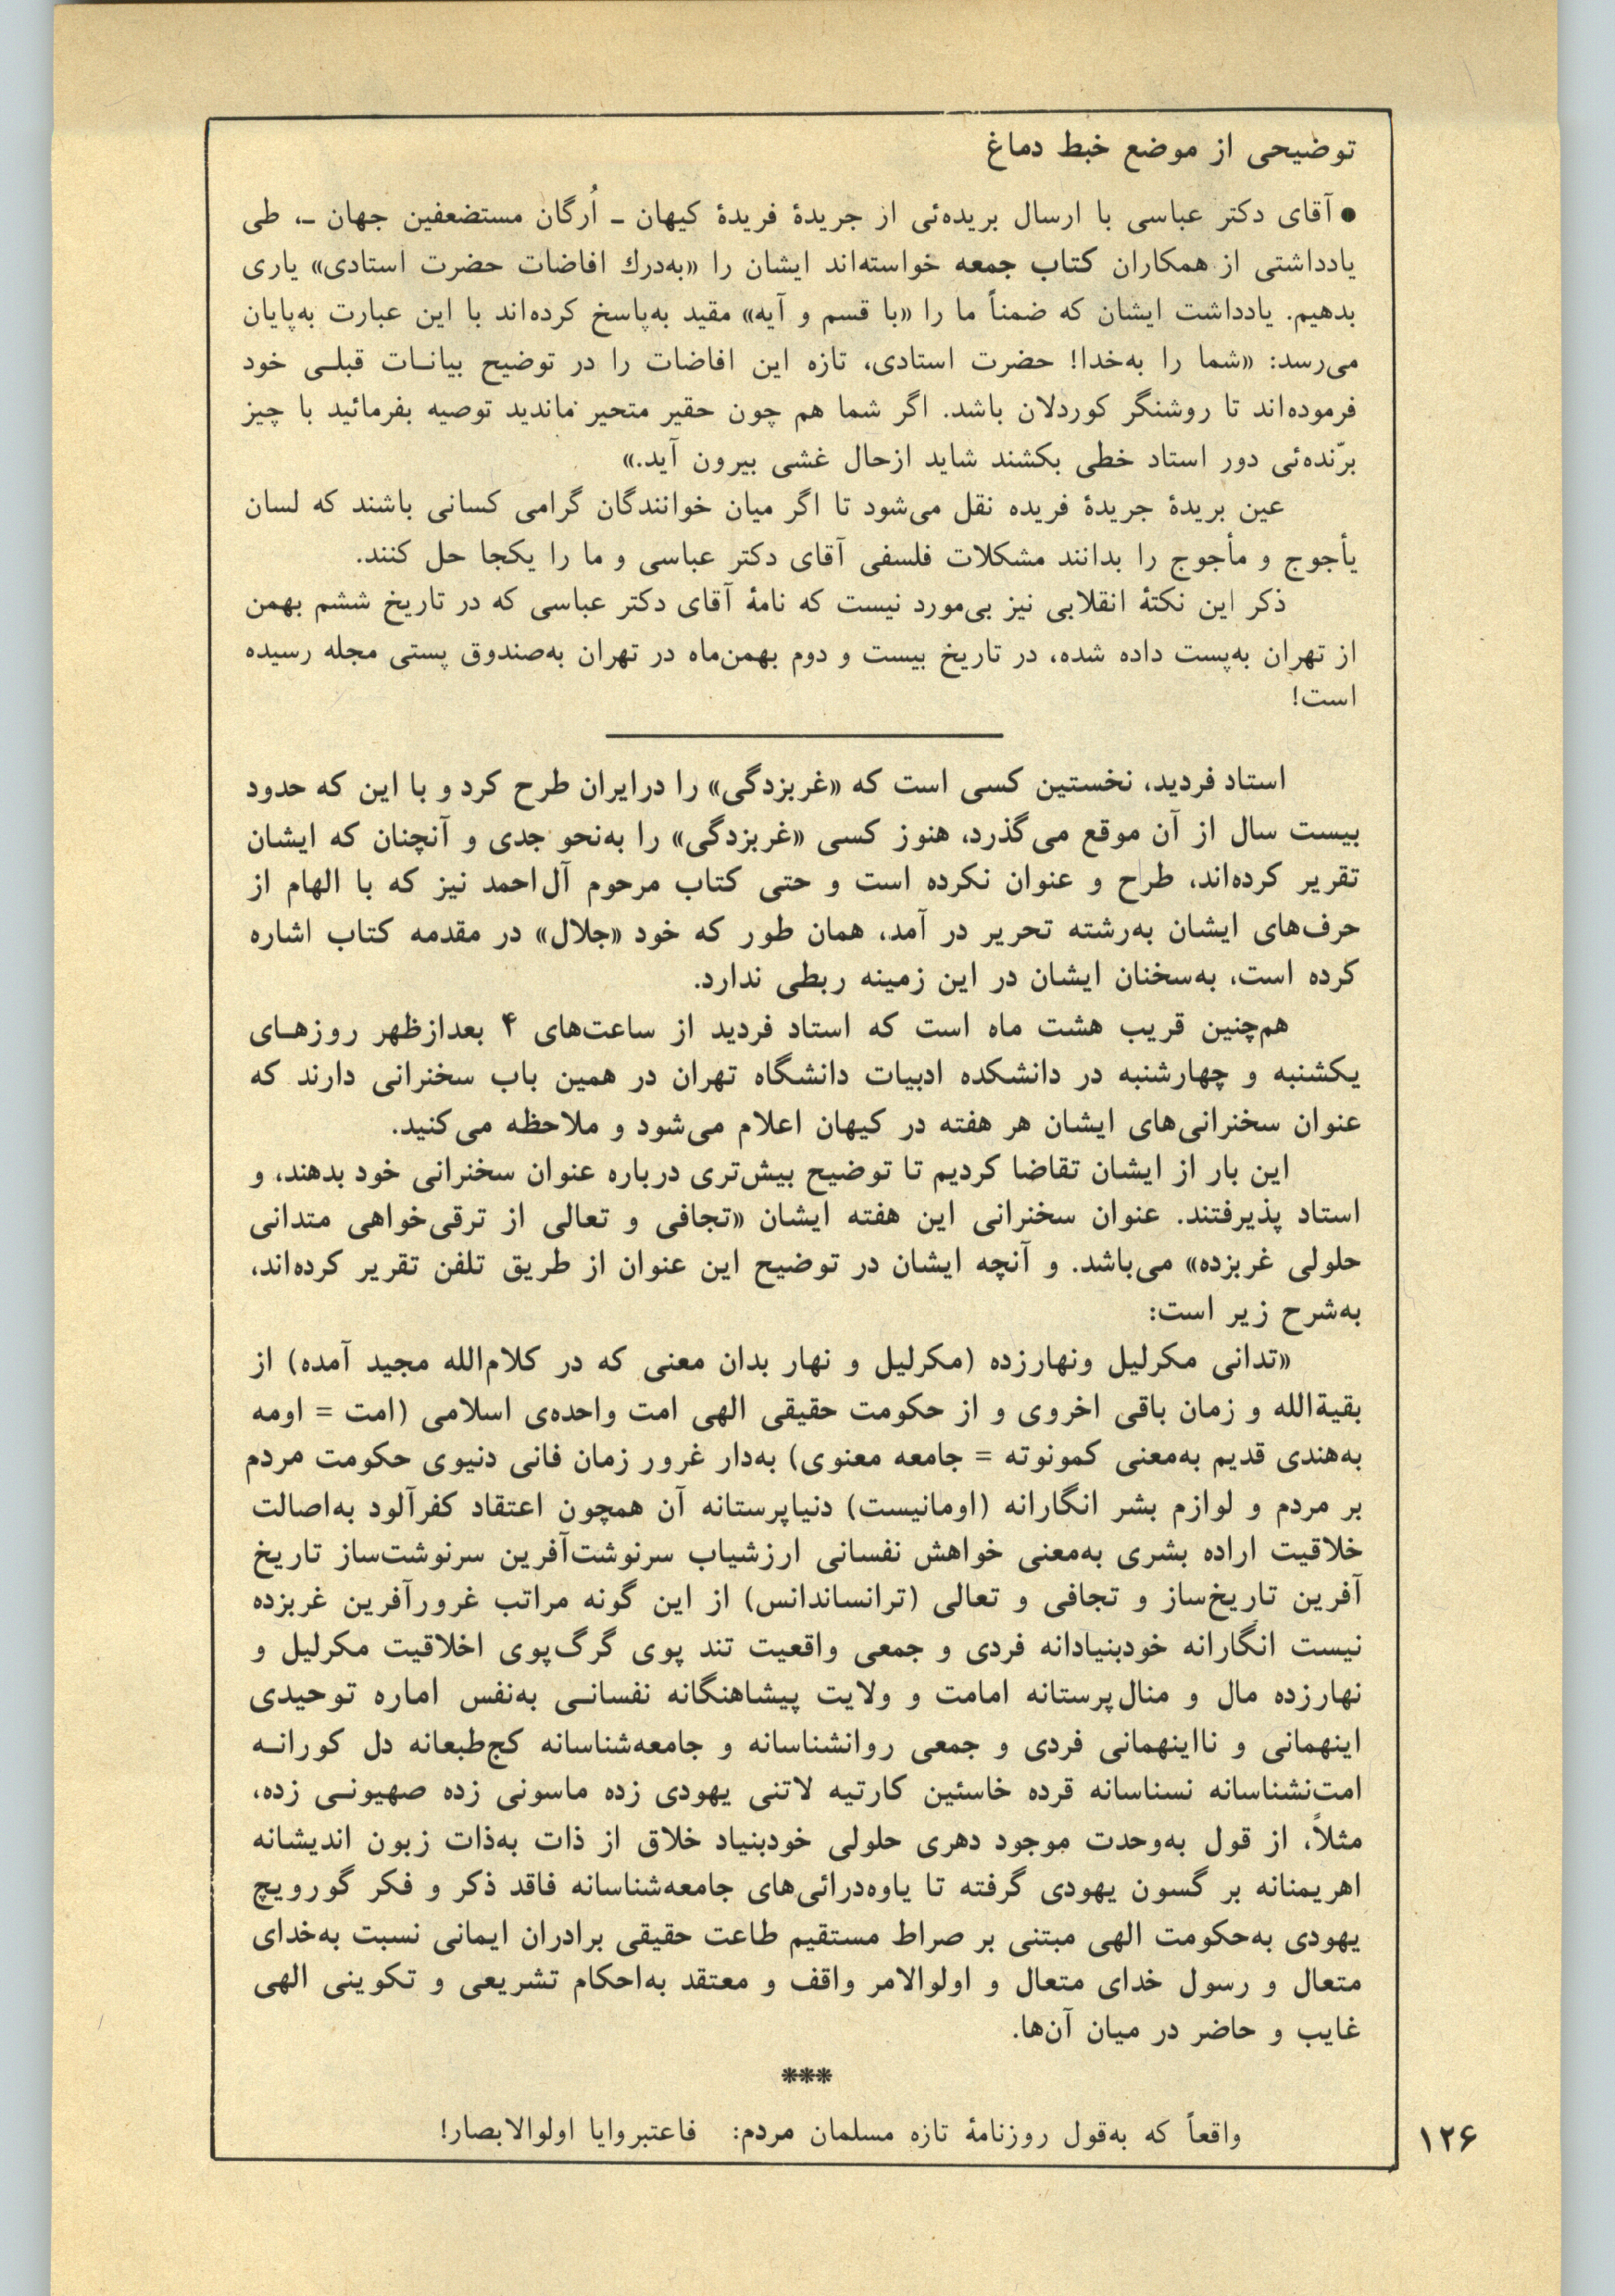 توضیحی از موضع خبط دماغ
● آقای دکتر عباسی با ارسال بریده‌ئی از جریدهٔ فریدهٔ کیهان ـ اُرگان مستضعفین جهان ـ، طی
یادداشتی از همکاران کتاب جمعه خواسته‌اند ایشان را «به‌درك افاضات حضرت استادی» یاری
بدهیم. یادداشت ایشان که ضمناً ما را «با قسم و آیه» مقید به‌پاسخ کرده‌اند با این عبارت به‌پایان
می‌رسد: «شما را به‌خدا! حضرت استادی، تازه این افاضات را در توضیح بیانـات قبلـی خود
فرموده‌اند تا روشنگر کوردلان باشد. اگر شما هم چون حقیر متحیر ماندید توصیه بفرمائید با چیز
برّنده‌ئی دور استاد خطی بکشند شاید ازحال غشی بیرون آید.»
عین بریدهٔ جریدهٔ فریده نقل می‌شود تا اگر میان خوانندگان گرامی کسانی باشند که لسان
یأجوج و مأجوج را بدانند مشکلات فلسفی آقای دکتر عباسی و ما را یکجا حل کنند.
ذکر این نکتهٔ انقلابی نیز بی‌مورد نیست که نامهٔ آقای دکتر عباسی که در تاریخ ششم بهمن
از تهران به‌پست داده شده، در تاریخ بیست و دوم بهمن‌ماه در تهران به‌صندوق پستی مجله رسیده
است!
استاد فردید، نخستین کسی است که «غربزدگی» را درایران طرح کرد و با این که حدود
بیست سال از آن موقع می‌گذرد، هنوز کسی «غربزدگی» را به‌نحو جدی و آنچنان که ایشان
تقریر کرده‌اند، طراح و عنوان نکرده است و حتی کتاب مرحوم آل‌احمد نیز که با الهام از
حرف‌های ایشان به‌رشته تحریر در آمد، همان طور که خود «جلال» در مقدمه کتاب اشاره
کرده است، به‌سخنان ایشان در این زمینه ربطی ندارد.
هم‌چنین قریب هشت ماه است که استاد فردید از ساعت‌های ۴ بعدازظهر روزهـای
یکشنبه و چهارشنبه در دانشکده ادبیات دانشگاه تهران در همین باب سخنرانی دارند که
عنوان سخنرانی‌های ایشان هر هفته در کیهان اعلام می‌شود و ملاحظه می‌کنید.
این بار از ایشان تقاضا کردیم تا توضیح بیش‌تری درباره عنوان سخنرانی خود بدهند، و
استاد پذیرفتند. عنوان سخنرانی این هفته ایشان «تجافی و تعالی از ترقی‌خواهی متدانی
حلولی غربزده» می‌باشد. و آنچه ایشان در توضیح این عنوان از طریق تلفن تقریر کرده‌اند،
به‌شرح زیر است:
«تدانی مکرلیل ونهارزده (مکرلیل و نهار بدان معنی که در کلام‌الله مجید آمده) از
بقیةالله و زمان باقی اخروی و از حکومت حقیقی الهی امت واحده‌ی اسلامی (امت = اومه
به‌هندی قدیم به‌معنی کمونوته = جامعه معنوی) به‌دار غرور زمان فانی دنیوی حکومت مردم
بر مردم و لوازم بشر انگارانه (اومانیست) دنیاپرستانه آن همچون اعتقاد کفرآلود به‌اصالت
خلاقیت اراده بشری به‌معنی خواهش نفسانی ارزشیاب سرنوشت‌آفرین سرنوشت‌ساز تاریخ
آفرین تاریخ‌ساز و تجافی و تعالی (ترانساندانس) از این گونه مراتب غرورآفرین غربزده
نیست انگارانه خودبنیادانه فردی و جمعی واقعیت تند پوی گرگ‌پوی اخلاقیت مکرلیل و
نهارزده مال و منال‌پرستانه امامت و ولایت پیشاهنگانه نفسانـی به‌نفس اماره توحیدی
اینهمانی و نااینهمانی فردی و جمعی روانشناسانه و جامعه‌شناسانه کج‌طبعانه دل کورانـه
امت‌نشناسانه نسناسانه قرده خاسئین کارتیه لاتنی یهودی زده ماسونی زده صهیونـی زده،
مثلاً، از قول به‌وحدت موجود دهری حلولی خودبنیاد خلاق از ذات به‌ذات زبون اندیشانه
اهریمنانه بر گسون یهودی گرفته تا یاوه‌درائی‌های جامعه‌شناسانه فاقد ذکر و فکر گورویچ
یهودی به‌حکومت الهی مبتنی بر صراط مستقیم طاعت حقیقی برادران ایمانی نسبت به‌خدای
متعال و رسول خدای متعال و اولوالامر واقف و معتقد به‌احکام تشریعی و تکوینی الهی
غایب و حاضر در میان آن‌ها.
***
واقعاً که به‌قول روزنامهٔ تازه مسلمان مردم: فاعتبروایا اولوالابصار!
۱۲۶